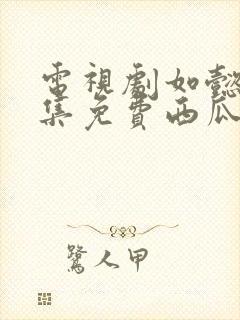 電視劇如懿
集免費西瓜
鷺人甲